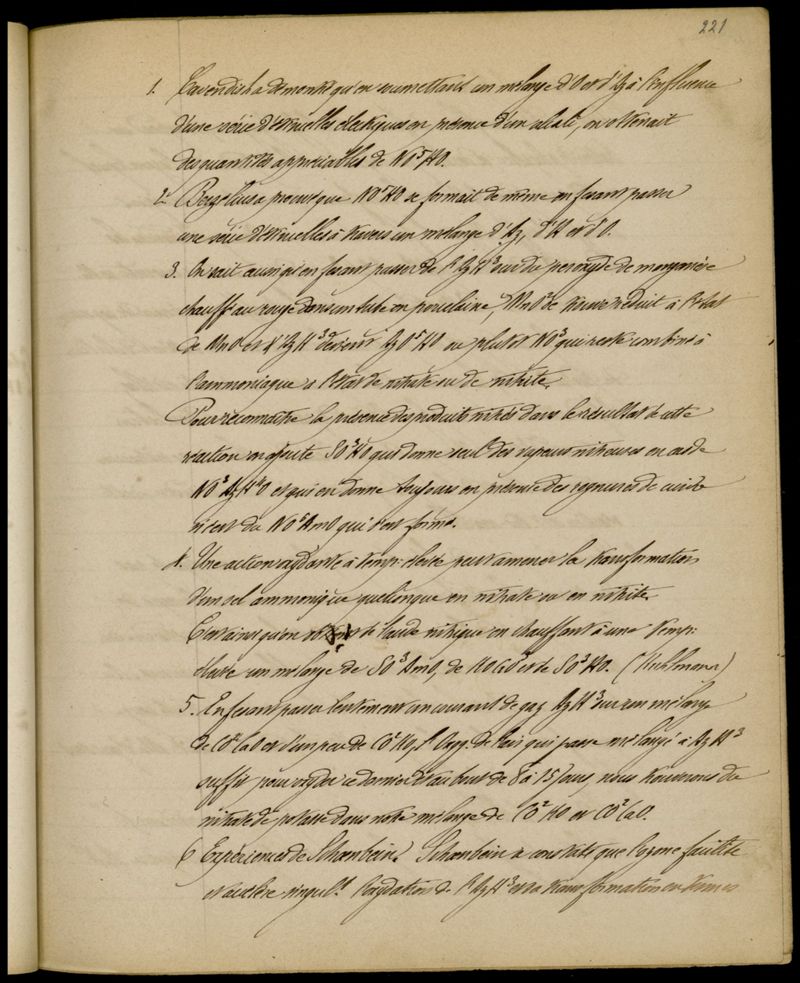 221
1. Cavendish a démontré qu'en soumettant un mélange d'O et d'Az à l'influence
d'une série d'étincelles électriques en présence d'un alcali, on obtenait
des quantités appréciables de NO⁵HO.
2. Berzelius a prouvé que NO⁵HO se formait de même en faisant passer
une série d'étincelles à travers un mélange d'Az, d'H et d'O.
3. On sait aussi qu'en faisant passer de l'AzH³ sur du peroxyde de manganèse
chauffé au rouge dans un tube en porcelaine, MnO² se trouve réduit à l'état
de MnO et l'AzH³ devient AzO⁵HO ou plutôt NO³ qui reste combiné à
l'ammoniaque à l'état de nitrate ou de nitrite.
Pour reconnaître la présence des produits nitrés dans le résultat de cette
réaction on ajoute SO³HO qui donne seul des vapeurs nitreuses en cas de
NO³AzH⁴O et qui en donne toujours en présence des rognures de cuivre
si c'est du NO⁵AmO qui s'est formé.
4. Une action oxydante à temp. élevée peut amener la transformation
d'un sel ammonique quelconque en nitrate ou en nitrite.
C'est ainsi qu'on obtient de l'acide nitrique en chauffant à une temp.
élevée un mélange de SO³AmO, de et de SO³HO. (Kuhlmann)
5. En faisant passer lentement un courant de gaz AzH³ sur un mélange
de CO²CaO et d'un peu de CO²KO, l'oxyg. de l'air qui passe mélangé à AzH³
suffit pour oxyder ce dernier et au bout de 8 à 15 jours, nous trouverons du
nitrate de potasse dans notre mélange de CO²KO et CO²CaO.
6 Expériences de Schoenbein. Schoenbein a constaté que l'ozone facilite
et accélère singul.t l'oxydation de l'AzH³ et sa transformation en